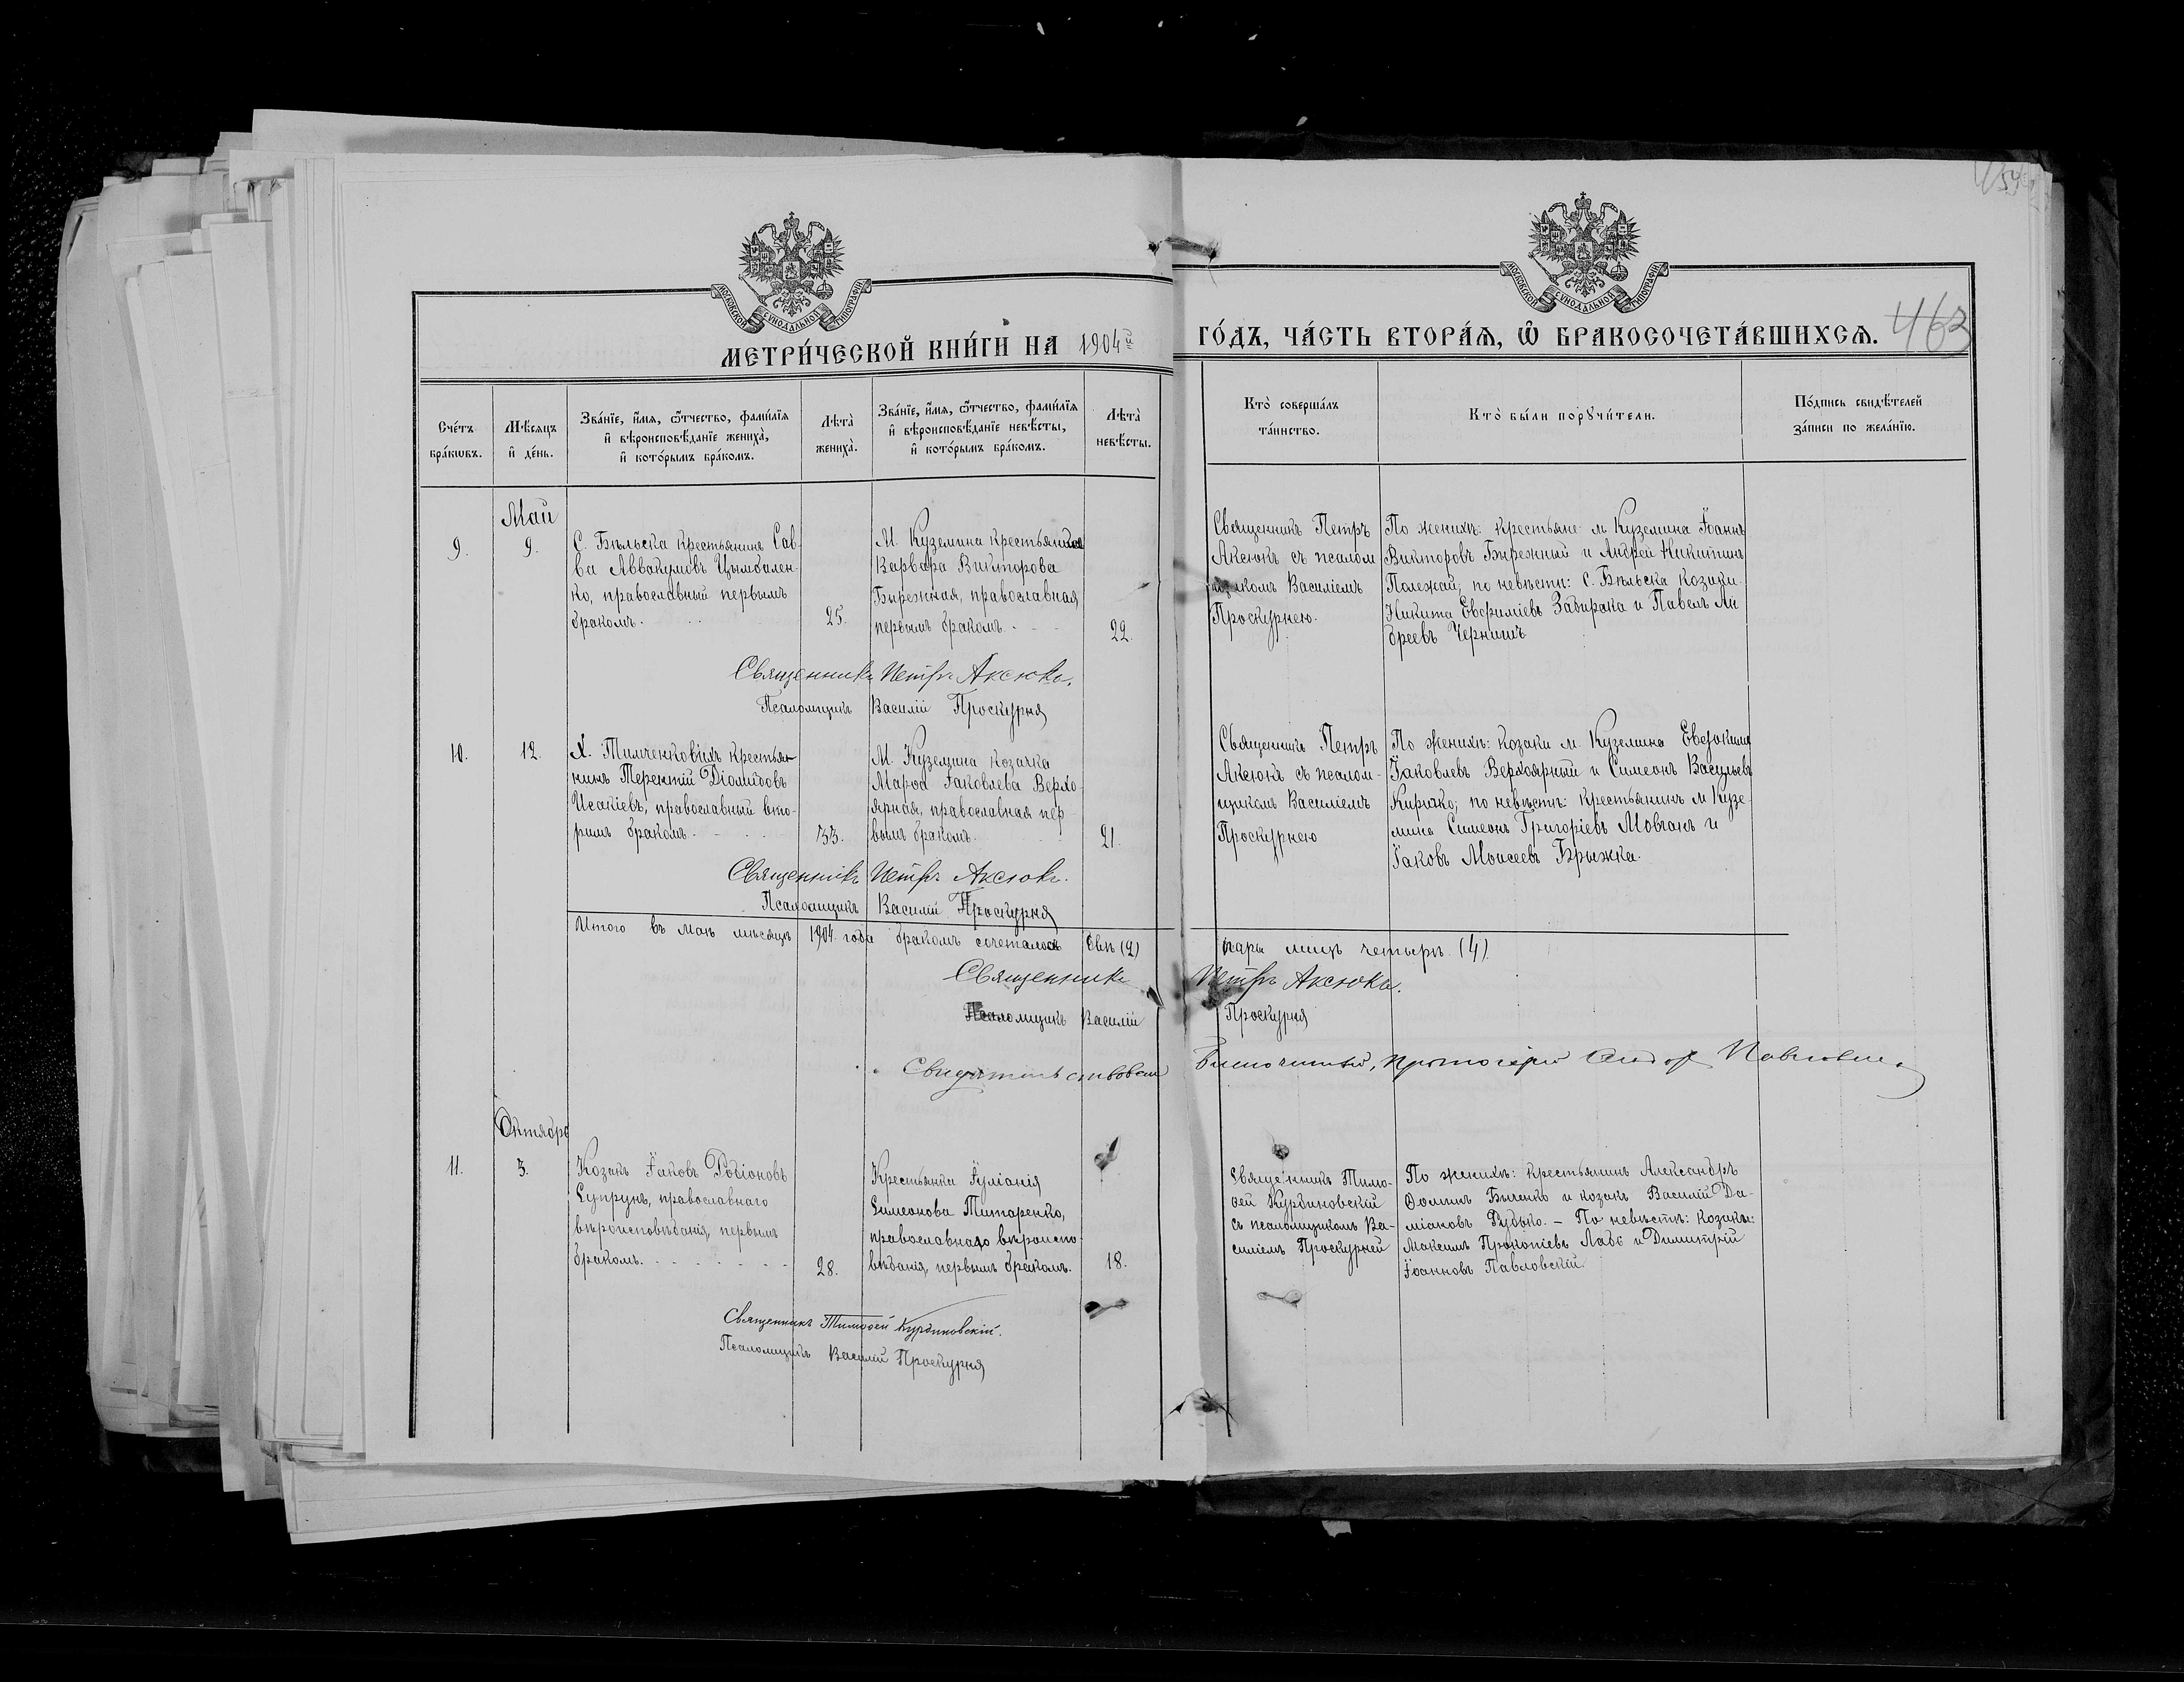 459
463
МОСКОВСКОЙ СУНОДАЛЬНОЙ ТИПОГРАФІИ
МОСКОВСКОЙ СУНОДАЛЬНОЙ ТИПОГРАФІИ
МЕТРИ́ЧЕСКОЙ КНИ́ГИ НА 1904й ГО́ДЪ, ЧА́СТЬ ВТОРА́Я, Ѡ БРАКОСОЧЕТА́ВШИХСЯ.
Сче́тъ
бра́кѡвъ.
Мѣ́сяцъ
и҆ де́нь.
Зва́нїе, и҆́мя, ѻ҆́тчество, фами́лїя
и҆ вѣроисповѣ́данїе жениха̀,
и҆ кото́рымъ бра́комъ.
Лѣта̀
жениха̀.
Зва́нїе, и҆́мя, ѻ҆́тчество, фами́лїя
и҆ вѣроисповѣ́данїе невѣ́сты,
и҆ кото́рымъ бра́комъ.
Лѣта̀
невѣ́сты.
Кто̀ соверша́лъ
та́инство.
Кто̀ бы́ли порꙋчи́тели.
По́дпись свидѣ́телей
за́писи по жела́нїю.
Май
9.
9.
С. Бѣльска крестьянинъ Сав-
ва Аввакумовъ Цымбален-
ко, православный первымъ
бракомъ.
25.
М. Куземина крестьянка
Варвара Викторова
Бирежная, православная
первымъ бракомъ.
22.
Священникъ Петръ
Аксюкъ съ псалом
щикомъ Василіемъ
Проскурнею.
По женихѣ: крестьяне м. Куземина Іоаннъ
Викторовъ Бирежный и Андрей Никитинъ
Полежай; по невѣсти: С. Бѣльска козаки
Никита Евфиміевъ Забирака и Павелъ Ан
дреевъ Чернишъ
Священникъ Петръ Аксюкъ.
Псаломщикъ Василій Проскурня
10.
12.
Х. Тимченковыхъ крестья-
нинъ Терентій Діомидовъ
Исакіевъ, православный вто-
римъ бракомъ.
33.
М. Куземина козачка
Марѳа Іаковлева Верхо-
ярная, православная пер
вымъ бракомъ.
21.
Священникъ Петръ
Аксюкъ съ псалом-
щикомъ Василіемъ
Проскурнею
По женихѣ: козаки м. Куземина Евдокимъ
Іаковлевъ Верхоярный и Симеонъ Васильевъ
Киричко; по невѣсти: крестьянинъ м. Кузе-
мина Симеонъ Григоріевъ Мовчанъ и
Іаковъ Моисеевъ Брыжка.
Священникъ Петръ Аксюкъ.
Псаломщикъ Василій Проскурня
Итого въ маѣ мѣсяцѣ 1904 года бракомъ сочеталось двѣ (2) пары лицъ четыре (4).
Священникъ Петръ Аксюкъ.
Псаломщикъ Василій Проскурня
Свидѣтельствовалъ Благочинный, протоіерей Павловскій
Октябрь
11.
3.
Козакъ Іаковъ Родіоновъ
Супрунъ, православнаго
вѣроисповѣданія, первымъ
бракомъ.
28.
Крестьянка Іуліанія
Симеонова Титаренко,
православнаго вѣроиспо-
вѣданія, первымъ бракомъ.
18.
Священникъ Тимо-
ѳей Курдиновскій
съ псаломщикомъ Ва-
силіемъ Проскурней
По женихѣ: крестьянинъ Александръ
Ѳоминъ Быченко и козакъ Василій Да-
міановъ Рудько. — По невѣстѣ: козаки:
Максимъ Прокопіевъ Ладъ и Димитрій
Іоанновъ Павловскій.
Священникъ Тимоѳей Курдиновскій.
Псаломщикъ Василій Проскурня